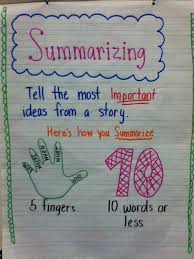 Summarizing
Tell the most Important
ideas from a story.
Here's how you Summarize
WHO
5 fingers
10
10 words or
less